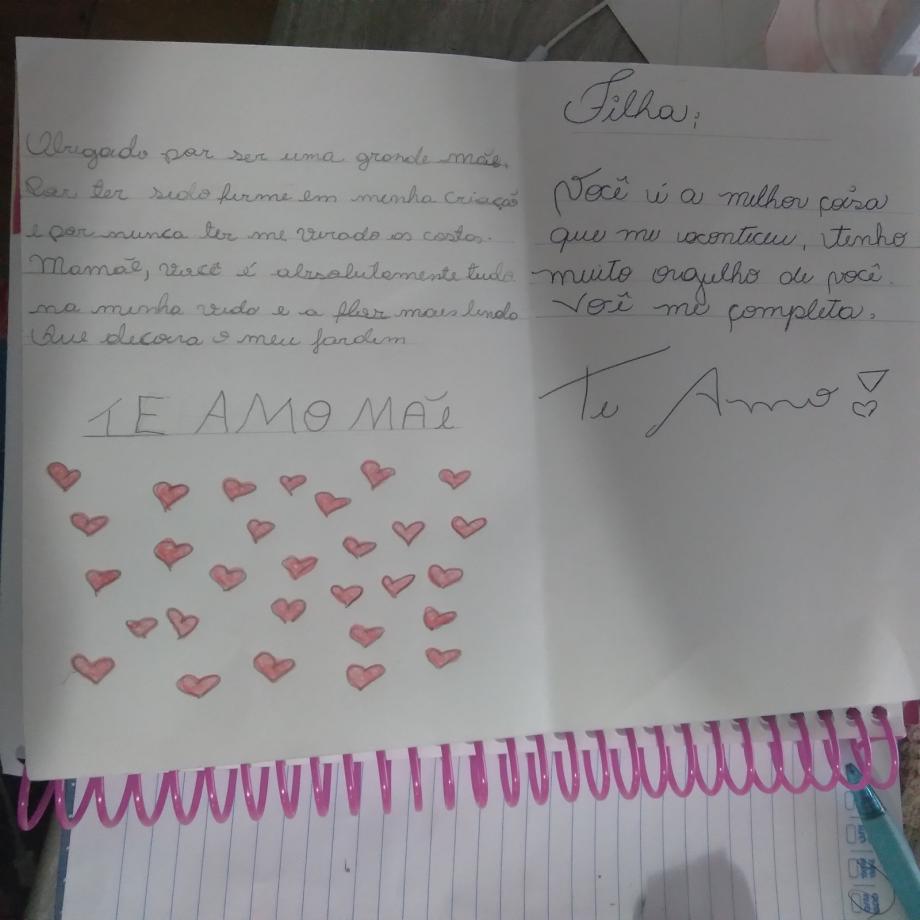 Obrigado por ser uma grande mãe.
Por ter sido firme em minha criação
e por nunca ter me virado as costas.
Mamãe, você é absolutamente tudo
na minha vida e a flor mais linda
Que decora o meu jardim
TE AMO MÃE
Filha;
Você é a melhor coisa
que me aconteceu, tenho
muito orgulho de você.
Você me completa.
Te Amo!